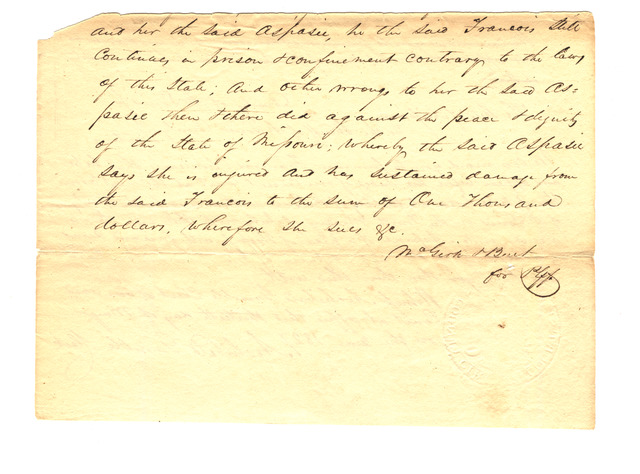 and her the said Aspasie, he the said Francois still
continues in prison & confinement contrary to the laws
of this State; And other wrongs to her the said As=
pasie then & there did against the peace & dignity
of the State of Missouri; whereby the said Aspasie
says she is injured and has sustained damage from
the said Francois to the sum of One Thousand
dollars, wherefore she sues &c.
McGirk & Bent
for Plff